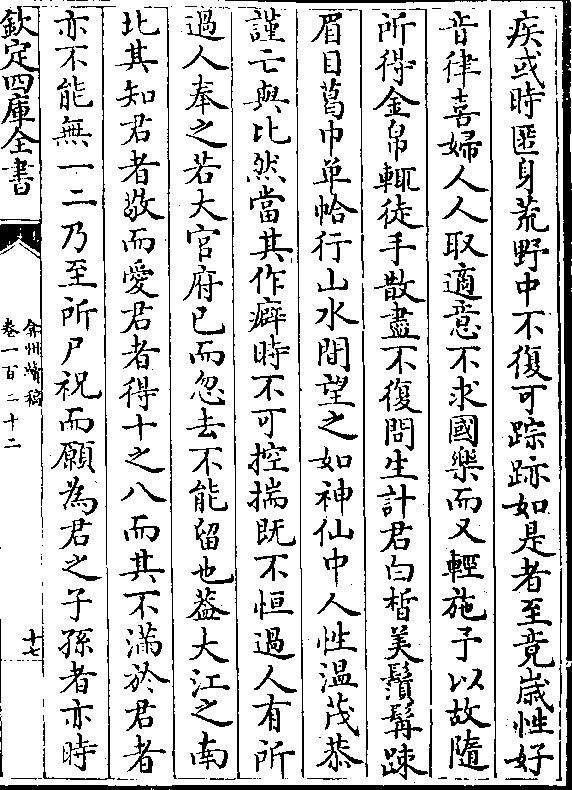 疾或時匿身荒野中不復可踪跡如是者至竟嵗性好
音律喜婦人人取適意不求國樂而又輕施予以故隨
所得金帛輒徒手散盡不復問生計君白皙美鬚髯踈
眉目葛巾单帢行山水間望之如神仙中人性温茂恭
謹亡與比然當其作癖時不可控揣既不恒過人有所
過人奉之若大官府已而忽去不能留也葢大江之南
北其知君者敬而愛君者得十之八而其不滿於君者
亦不能無一二乃至所尸祝而願為君之子孫者亦時
欽定四庫全書
弇州續稿
卷一百二十二
十七